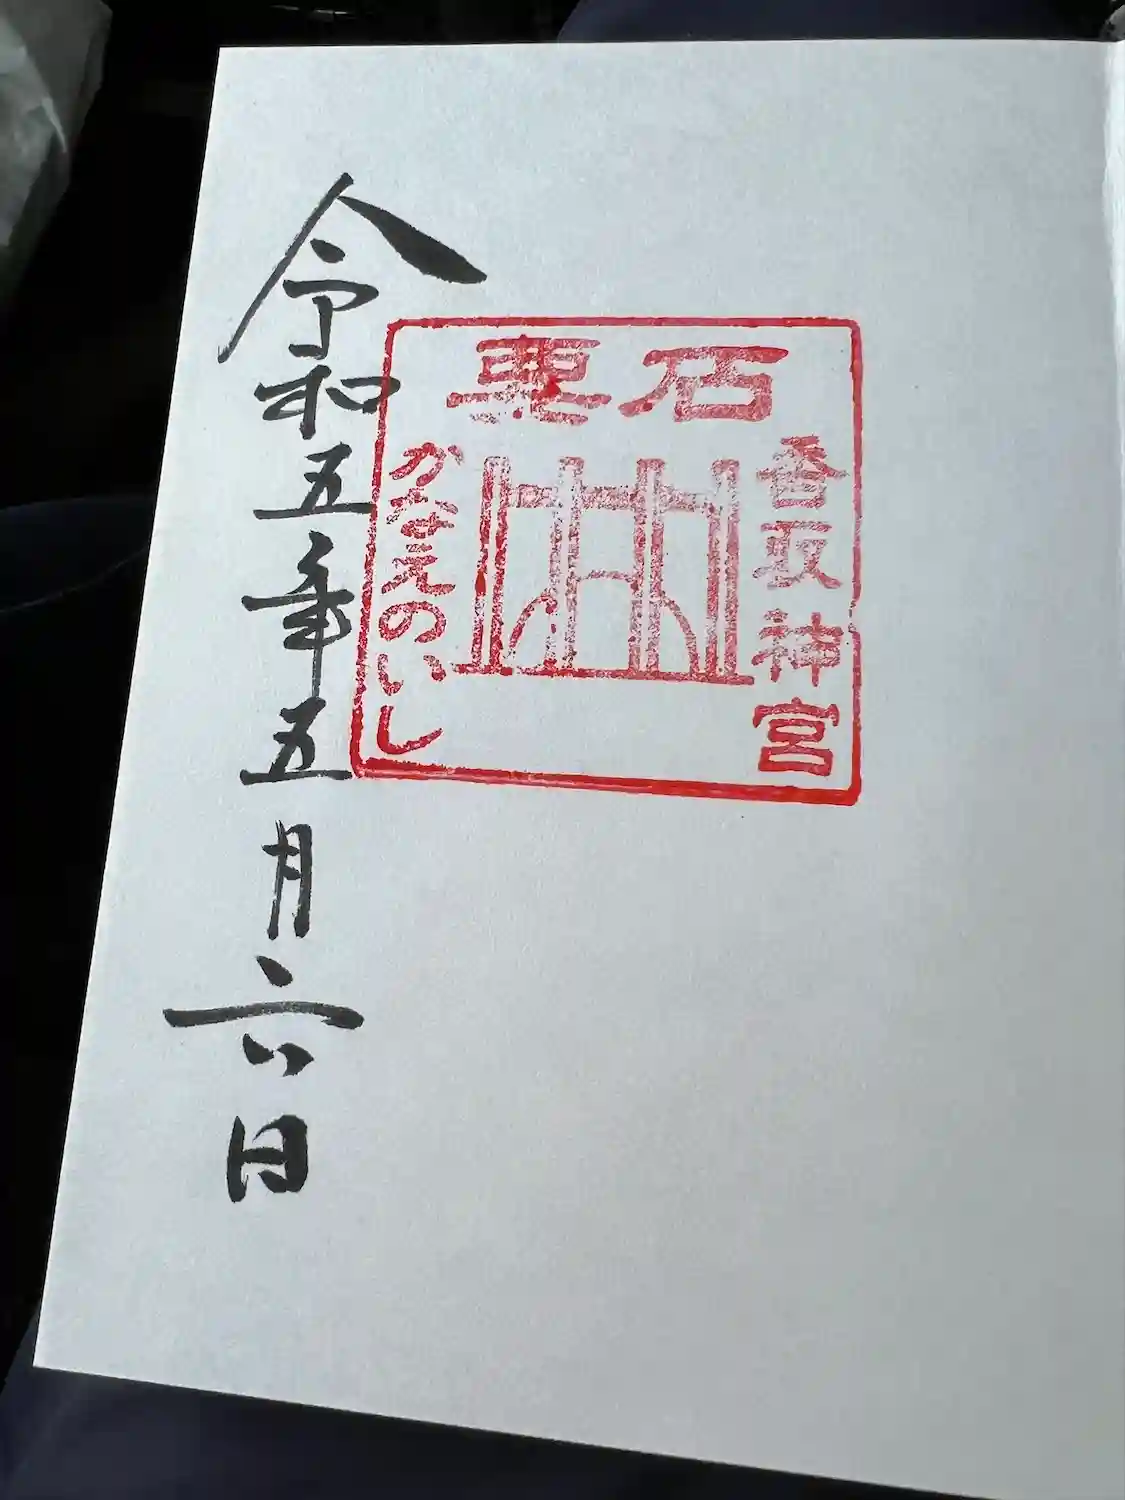 要石
香取神宮
のいし
令和五年五月六日